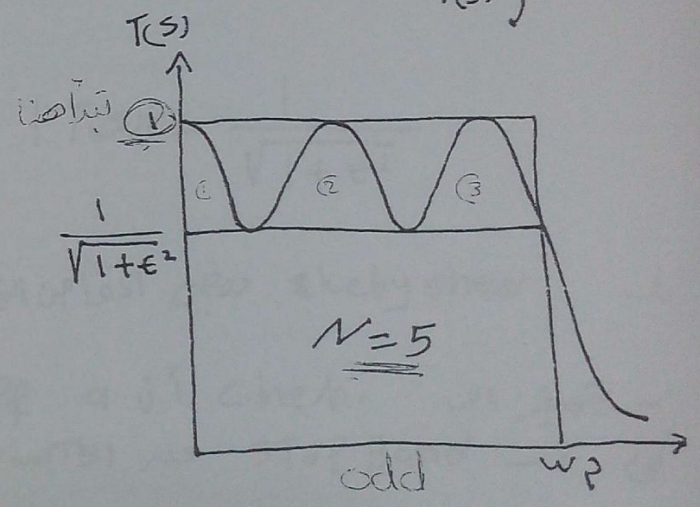 T(s)
تبدأ هنا 1
1
√1+ϵ²
① ② ③
N=5
odd
wp